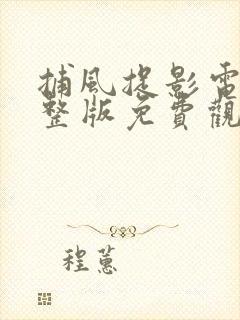 捕風捉影電
整版免費觀
程蕙